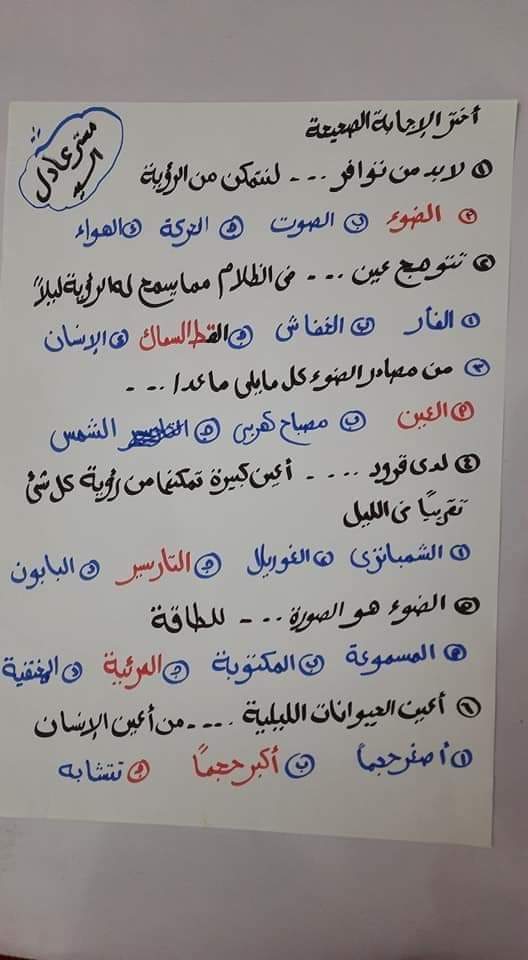 أختر الإجابة الصحيحة
مستر عادل
السيد
١ لابد من توافر --- لنتمكن من الرؤية
أ الضوء ب الصوت ج التركة د الهواء
٢ تتوهج عين --- فى الظلام مما يسمح له الرؤية ليلاً
أ الفأر ب الخفاش ج القط السماك د الإنسان
٣ من مصادر الضوء كل مايلى ماعدا ---
أ العين ب مصباح كهربى ج الشمس
٤ لدى قرود --- أعين كبيرة تمكنها من رؤية كل شئ
تقريبًا فى الليل
أ الشمبانزى ب الغوريلا ج التارسير د البابون
٥ الضوء هو الصورة --- للطاقة
أ المسموعة ب المكتوبة ج المرئية د المختفية
٦ أعين الحيوانات الليلية --- من أعين الإنسان
أ أصغر حجماً ب أكبر حجماً ج تتشابه